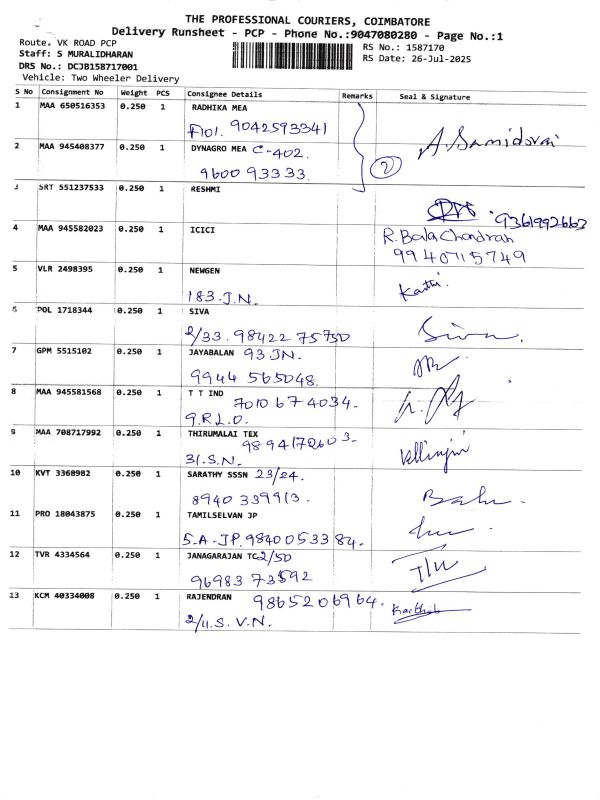 THE PROFESSIONAL COURIERS, COIMBATORE
Delivery Runsheet - PCP - Phone No.:9047080280 - Page No.:1
Route. VK ROAD PCP
Staff: S MURALIDHARAN
DRS No.: DCJB158717001
Vehicle: Two Wheeler Delivery
RS No.: 1587170
RS Date: 26-Jul-2025
S No Consignment No Weight PCS Consignee Details Remarks Seal & Signature
1 MAA 650516353 0.250 1 RADHIKA MEA
F101. 9042593341
2 MAA 945408377 0.250 1 DYNAGRO MEA C-402.
96009 3333. 2 A. Samidorai
3 SRT 551237533 0.250 1 RESHMI
9361992663
4 MAA 945582023 0.250 1 ICICI R. Bala Chandran
9940715749
5 VLR 2498395 0.250 1 NEWGEN
183. J.N.
6 POL 1718344 0.250 1 SIVA
2/33. 98422 75750 Siva.
7 GPM 5515102 0.250 1 JAYABALAN 93 JN.
9944 565048.
8 MAA 945581568 0.250 1 T T IND 7010674034.
9.R.L.O.
9 MAA 708717992 0.250 1 THIRUMALAI TEX 9894172603.
31.S.N.
10 KVT 3368982 0.250 1 SARATHY SSSN 23/24.
8940 339913. Balu.
11 PRO 18043875 0.250 1 TAMILSELVAN JP
5.A.JP. 98400533 84.
12 TVR 4334564 0.250 1 JANAGARAJAN TC 2/50
96983 73592
13 KCM 40334008 0.250 1 RAJENDRAN 9865206964.
2/11. S. V.N. Karthik